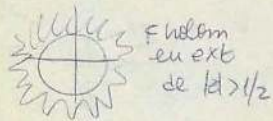 f holom
en ext
de |z|>1/2